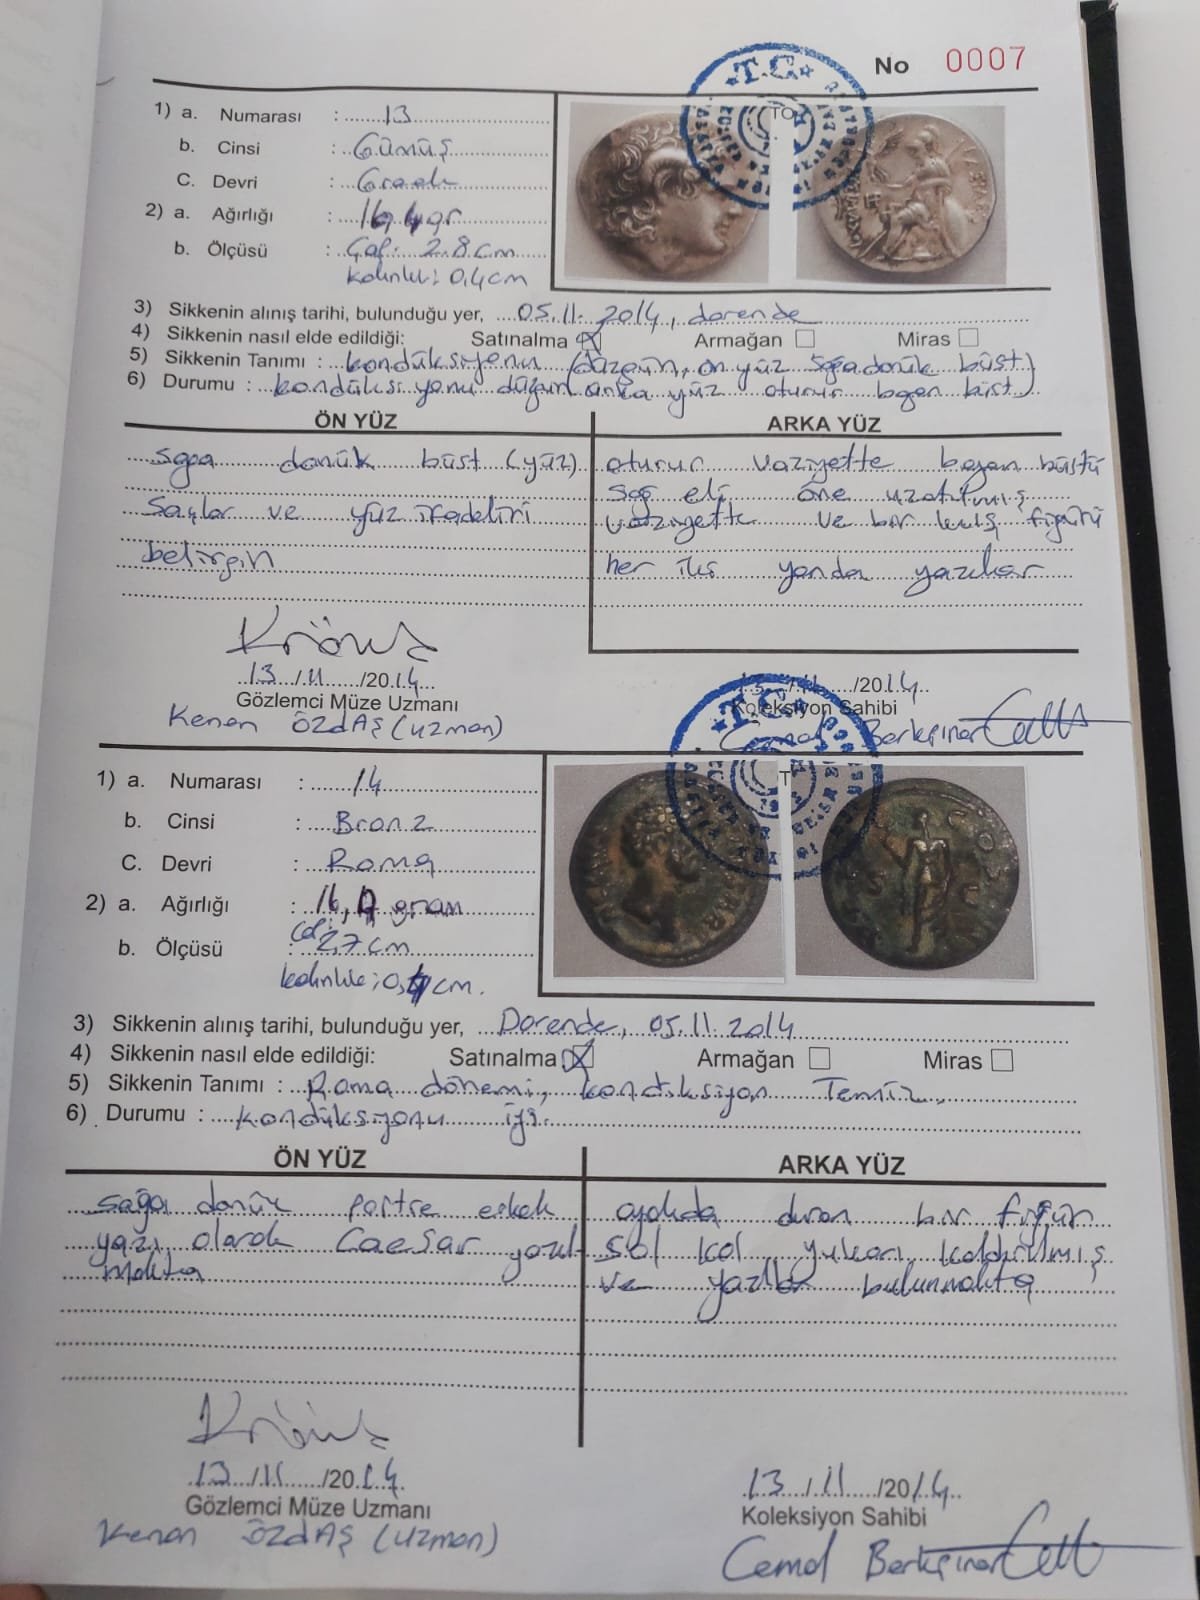 No 0007
1) a. Numarası : 13
b. Cinsi : Gümüş
C. Devri : Greek
2) a. Ağırlığı : 16,4 gr
b. Ölçüsü : Çap: 2.8 cm
kalınlık: 0,4 cm
3) Sikkenin alınış tarihi, bulunduğu yer, 05.11.2014, darende
4) Sikkenin nasıl elde edildiği: Satınalma Armağan Miras
5) Sikkenin Tanımı : kondüksiyonu (düzgün, ön yüz sağa dönük büst)
6) Durumu : kondüksiyonu düzgün arka yüz oturur bayan büst)
ÖN YÜZ ARKA YÜZ
sağa dönük büst (yüz)
saçlar ve yüz ifadeleri
belirgin
oturur vaziyette bayan büstü
sağ eli öne uzatılmış
vaziyette ve bir kuş figürü
her iki yanda yazılar
13/11/2014
Gözlemci Müze Uzmanı
Kenan ÖZDAŞ (uzman)
13/11/2014
Koleksiyon Sahibi
Cemal Berkpınar
T.C.
1) a. Numarası : 14
b. Cinsi : Bronz
C. Devri : Roma
2) a. Ağırlığı : 16,4 gram
b. Ölçüsü : Çap: 2,7 cm
kalınlık; 0,4 cm.
3) Sikkenin alınış tarihi, bulunduğu yer, Darende, 05.11.2014
4) Sikkenin nasıl elde edildiği: Satınalma Armağan Miras
5) Sikkenin Tanımı : Roma dönemi, kondüksiyon Temiz
6) Durumu : kondüksiyonu iyi.
ÖN YÜZ ARKA YÜZ
sağa dönük portre erkek
yazı olarak Caesar yazıl-
makta
ayakda duran bir figür
sol kol yukarı kaldırılmış
ve yazılar bulunmakta
13/11/2014
Gözlemci Müze Uzmanı
Kenan ÖZDAŞ (uzman)
13/11/2014
Koleksiyon Sahibi
Cemal Berkpınar